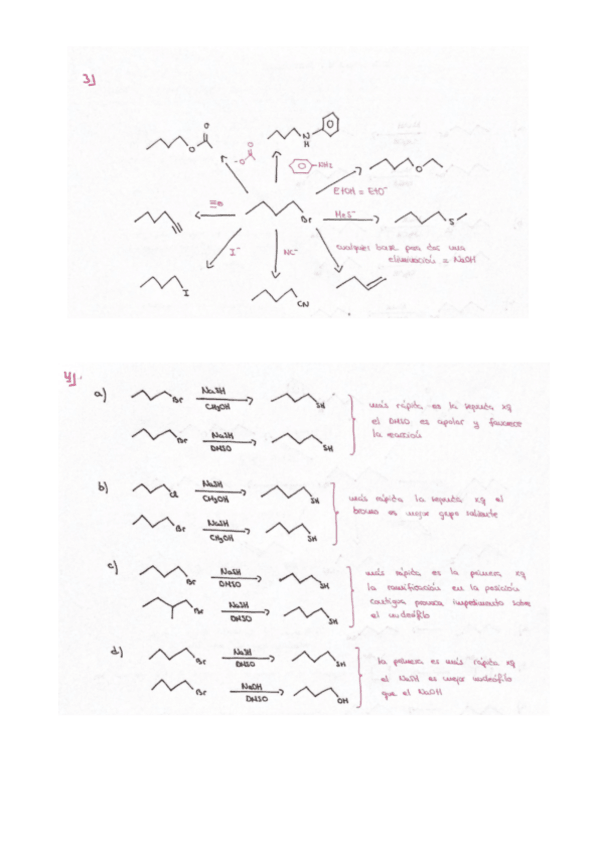 3)
O
O
O
-O
N
H
NH2
O
EtOH = EtO⁻
≡⊖
Br
MeS⁻
S
I⁻
NC⁻
cualquier base para dar una
eliminación = NaOH
I
CN
4).
a)
Br
NaSH
CH3OH
SH
Br
NaSH
DMSO
SH
más rápida es la segunda xq
el DMSO es apolar y favorece
la reacción
b)
Cl
NaSH
CH3OH
SH
Br
NaSH
CH3OH
SH
más rápida la segunda xq el
bromo es mejor grupo saliente
c)
Br
NaSH
DMSO
SH
Br
NaSH
DMSO
SH
más rápida es la primera xq
la ramificación en la posición
contigua provoca impedimento sobre
el nucleófilo
d)
Br
NaSH
DMSO
SH
Br
NaOH
DMSO
OH
la primera es más rápida xq
el NaSH es mejor nucleófilo
que el NaOH